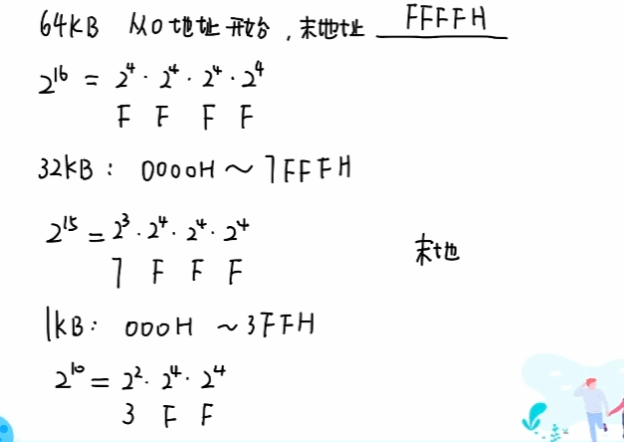 64KB 从0地址开始，末地址 FFFFH
2¹⁶ = 2⁴·2⁴·2⁴·2⁴
F F F F
32KB： 0000H～7FFFH
2¹⁵ = 2³·2⁴·2⁴·2⁴
7 F F F
末地
1KB： 000H ～3FFH
2¹⁰ = 2²·2⁴·2⁴
3 F F